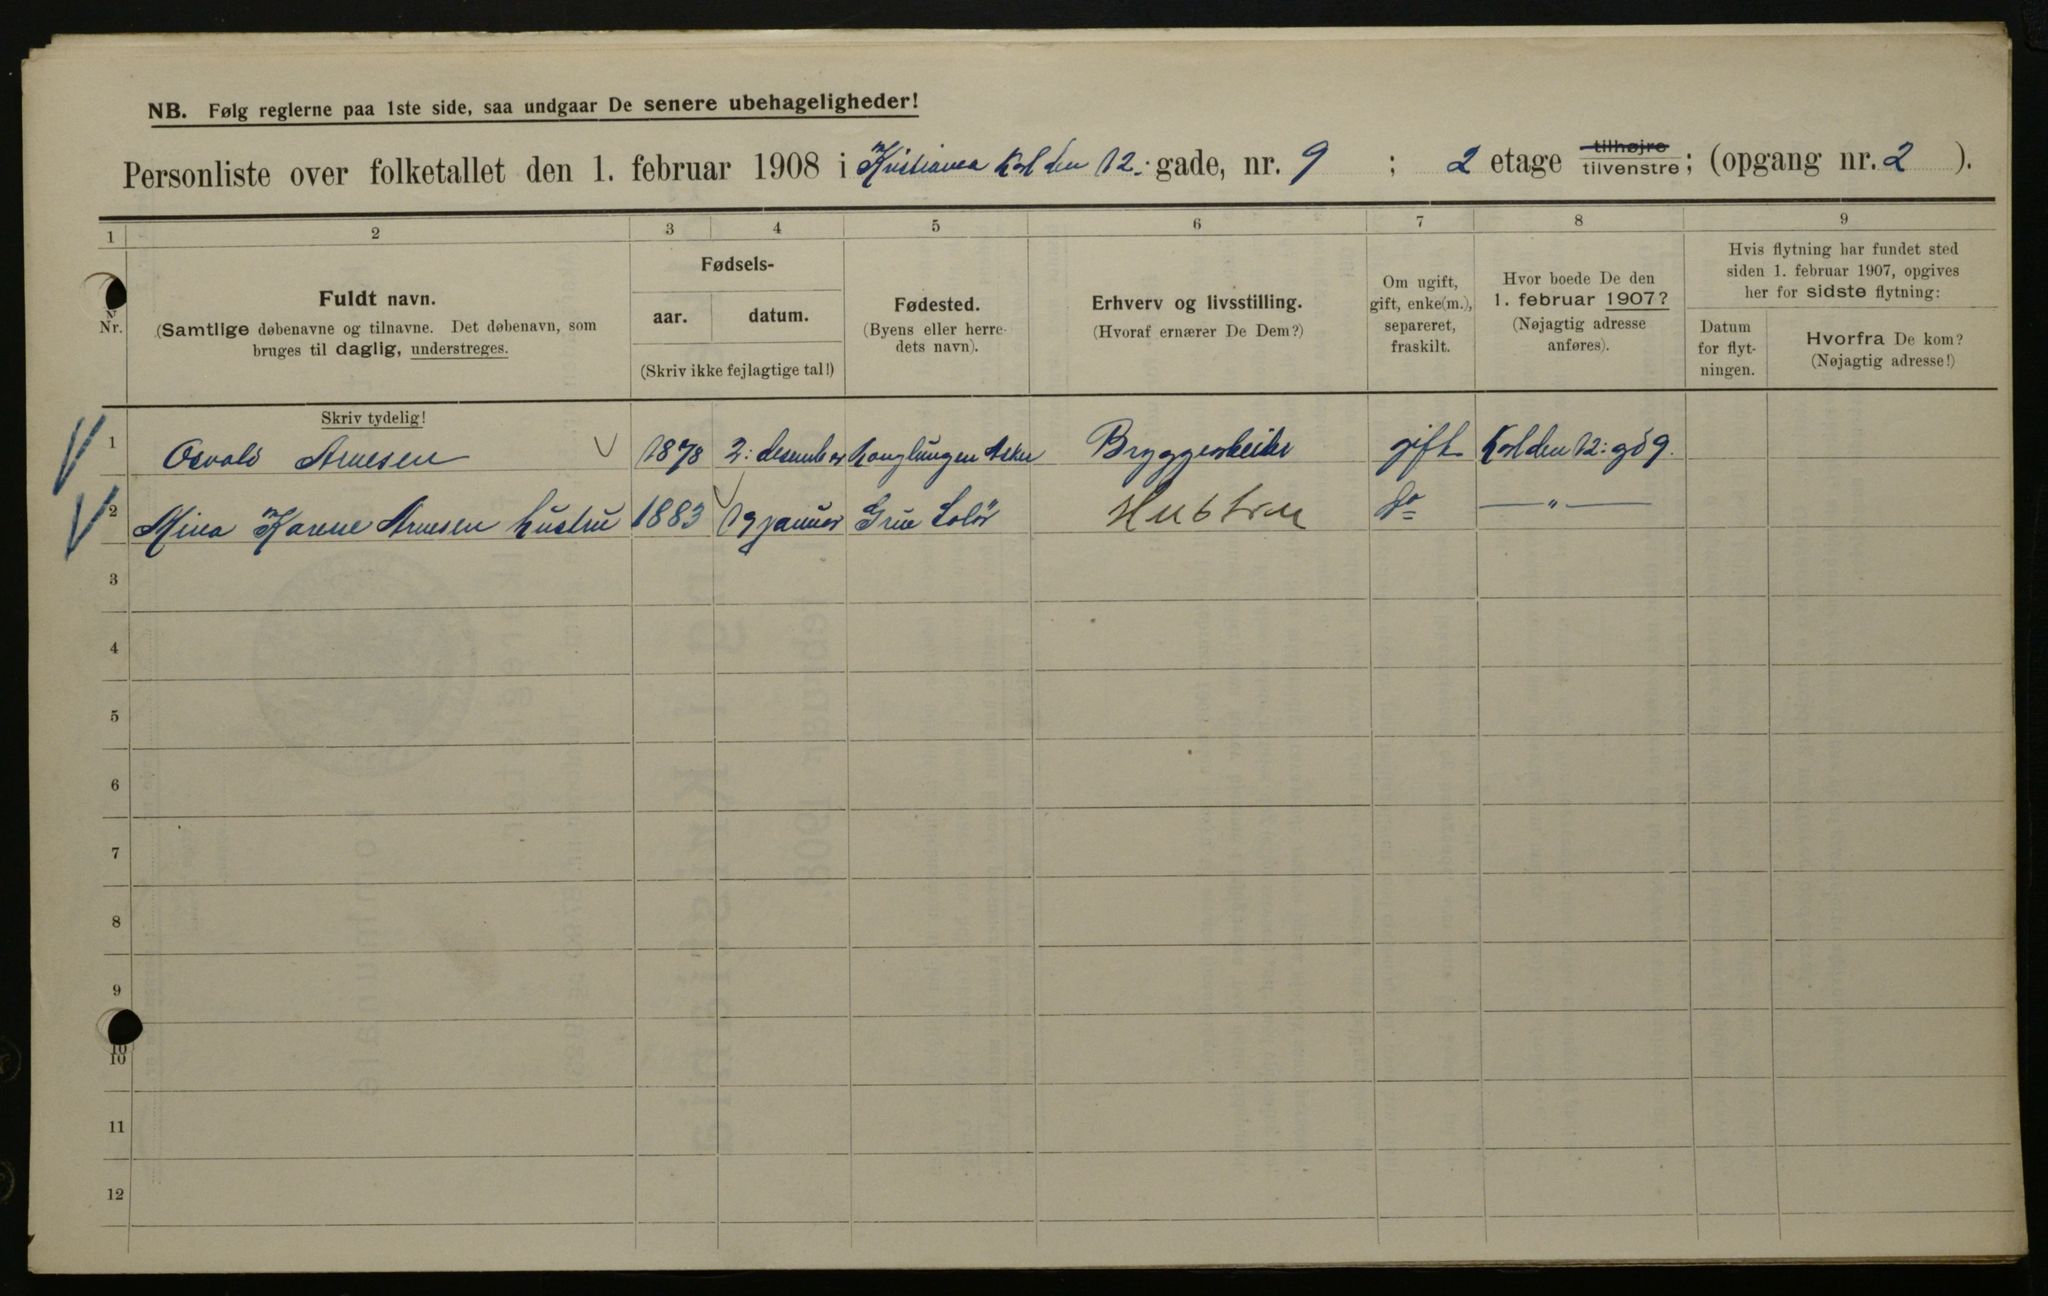 NB. Følg reglerne paa 1ste side, saa undgaar De senere ubehageligheder!
Personliste over folketallet den 1. februar 1908 i Kristiania Karl den 12: gade, nr. 9 ; 2 etage tilhøjre tilvenstre; (opgang nr. 2 ).
1 2 3 4 5 6 7 8 9
Nr.
Fuldt navn.
(Samtlige døbenavne og tilnavne. Det døbenavn, som
bruges til daglig, understreges.
Skriv tydelig!
Fødsels-
aar. datum.
(Skriv ikke fejlagtige tal!)
Fødested.
(Byens eller herre-
dets navn).
Erhverv og livsstilling.
(Hvoraf ernærer De Dem?)
Om ugift,
gift, enke(m.),
separeret,
fraskilt.
Hvor boede De den
1. februar 1907?
(Nøjagtig adresse
anføres).
Hvis flytning har fundet sted
siden 1. februar 1907, opgives
her for sidste flytning:
Datum
for flyt-
ningen.
Hvorfra De kom?
(Nøjagtig adresse!)
1 Osvald Arnesen 1878 2: desember Konglungen Asker Bryggearbeider gift Karl den 12: gd 9.
2 Mina Karene Arnesen hustru 1883 19 januar Grue Solør Hustru do — " —
3
4
5
6
7
8
9
10
10
11
12